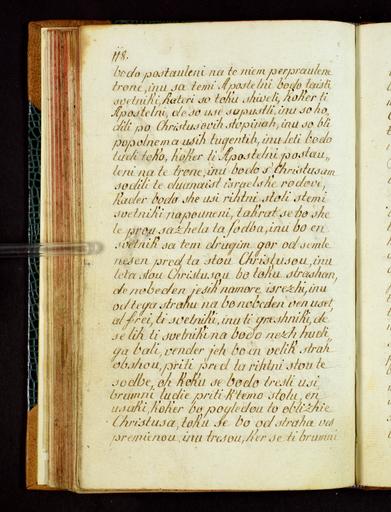 118.
bodo postauleni na te niem perpraulene
trone, inu sa temi Apostelni bodo taisti
svetniki, kateri so toku shiveli, koker ti
Apostelni, de so use sapustli, inu so ho„
dili po Christusovih stopinah, inu so bli
popolnema usih tugentih, inu leti bodo
tudi toko, koker ti Apostelni postau„
leni na te trone, inu bodo s' Christusam
sodili te duanaist israelske rodovi,
kader bodo she usi rihtni stoli s temi
svetniki napouneni, takrat se bo she
le prou sazhela ta sodba, inu bo en
svetnik sa tem drugim gor od semle
nesen pred ta stou Christusou, inu
leta stou Christusou bo toku strashan,
de nobeden jesik namore isrezhi, inu
od tega strahu na bo nobeden ven uset,
al frei, ti svetniki, inu ti greshniki, de
se lih ti svetniki na bodo nezh hudi„
ga bali, vender jeh bo en velik strah
obshou, priti pred ta rihtni stou te
sodbe, oh koku se bodo tresli usi
brumni ludie priti k'temo stolu, en
usaki, koker bo pogledou to obližhie
Christusa, toku se bo od straha ves
premienou, inu tresou, ker se ti brumni